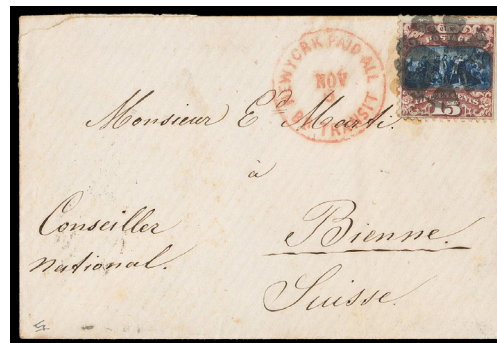 NEW YORK PAID ALL
NOV
BR. TRANSIT
POSTAGE
15
Monsieur Ed Marti.
à
Conseiller
national.
Bienne.
Suisse.